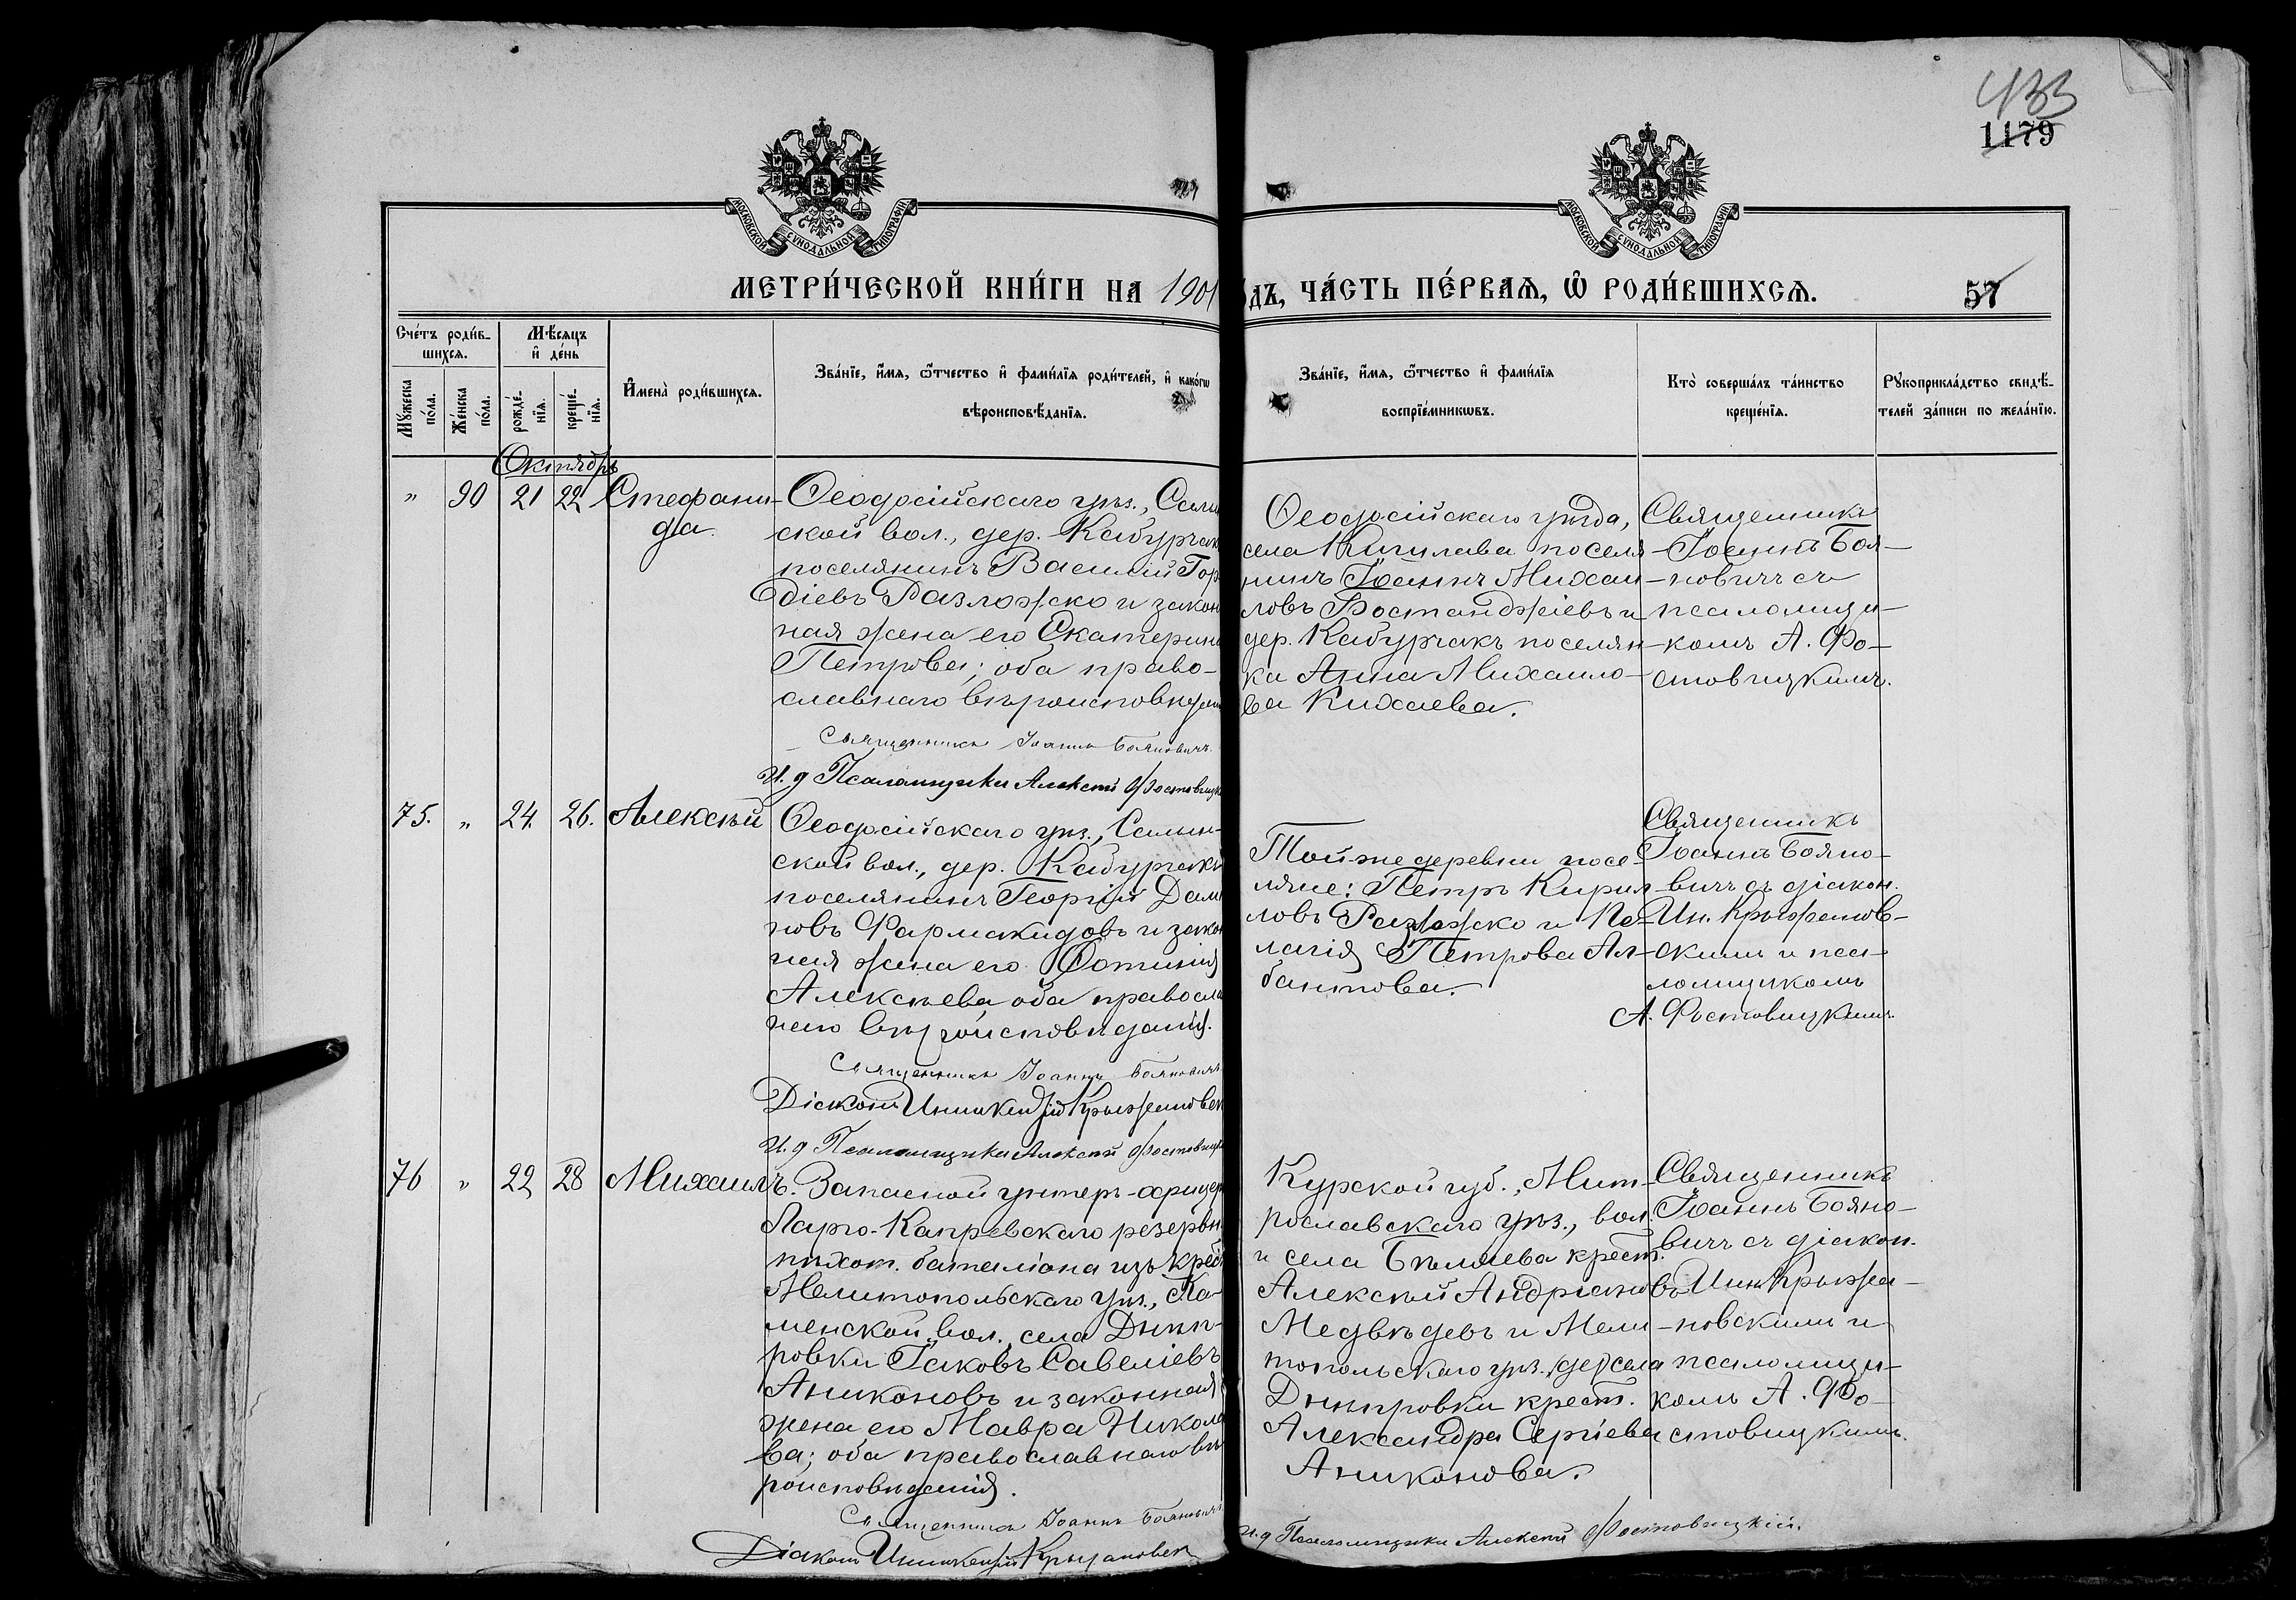 433
1179
МОСКОВСКОЙ СѴНОДАЛЬНОЙ ТИПОГРАФІИ
МОСКОВСКОЙ СѴНОДАЛЬНОЙ ТИПОГРАФІИ
МЕТРИ́ЧЕСКОЙ КНИ́ГИ НА 1901
дъ, ЧА́СТЬ ПЕ́РВАѦ, Ѽ РОДИ́ВШИХСѦ.
57
Сче́тъ роди́в-
шихсѧ.
Мѣ́сѧцъ
и҆ де́нь
Мꙋ́жеска
по́ла.
Же́нска
по́ла.
рожде́-
нїѧ.
креще́-
нїѧ.
И҆мена̀ роди́вшихсѧ.
Зва́нїе, и҆́мѧ, ѻ҆́тчество и҆ фами́лїѧ роди́телей, и҆ како́гѡ
вѣроисповѣ́данїѧ.
Зва́нїе, и҆́мѧ, ѻ҆́тчество и҆ фами́лїѧ
воспрїе́мникѡвъ.
Кто̀ соверша́лъ та́инство
креще́нїѧ.
Рꙋкоприкла́дство свидѣ́-
телей за́писи по жела́нїю.
Октябрь
„ 90 21 22 Стефани-
да
Ѳеодосійскаго уѣз., Салын
ской вол., дер. Кабурчак
поселянинъ Василій Гор
діевъ Разложко и закон
ная жена его Екатерина
Петрова; оба право-
славнаго вѣроисповѣдан
Священникъ Іоаннъ Бояновичъ.
И. д Псаломщика Алексѣй Фостовицк
Ѳеодосійскаго уѣзда,
села поселя-
нинъ Іоаннъ Михаи-
ловъ Бостанджіевъ и
дер. Кабурчакъ поселян-
ка Анна Михаило-
ва Кихаева.
Священникъ
Іоаннъ Боя-
новичъ съ
псаломщи-
комъ А. Фо-
стовицкимъ.
75. „ 24. 26. Алексѣй
Ѳеодосійскаго уѣз., Салын-
ской вол., дер. Кабурчакъ
поселянинъ Георгій Дам
новъ Фармакидовъ и закон
ная жена его Фотинія
Алексѣева, оба правосла
наго вѣроисповѣданія.
Священникъ Іоаннъ Бояновичъ.
Діаконъ Иннокентій Крыжановск
И. д Псаломщика Алексѣй Фостовицк
Той-же деревни посе-
ляне: Петръ Кирил-
ловъ Разложко и Пе-
лагія Петрова Ал-
бантова.
Священникъ
Іоаннъ Бояно-
вичъ съ діакон.
Ин. Крыжановс-
скимъ и пса-
ломщикомъ
А. Фостовицкимъ.
76 „ 22 28 Михаилъ.
Запасной унтеръ-офицер
Ларго-Кагульскаго резервн
пѣхот. баталіона изъ крест
Мелитопольскаго уѣз., Ка-
менской вол., села Днѣп-
ровки Іаковъ Савеліевъ
Аниконовъ и законная
жена его Мавра Никола
ва; оба православнаго вѣ
роисповѣданія.
Священникъ Іоаннъ Бояновичъ.
Діаконъ Иннокентій Крыжановск
Курской губ., Мит-
рославскаго уѣз., вол.
и села Бѣляева крест.
Алексѣй Андріановъ
Медвѣдевъ и Мели-
топольскаго уѣз. села
Днѣпровки крест.
Александра Сергіева
Аниконова.
Священникъ
Іоаннъ Бояно-
вичъ съ діакон.
Инн. Крыжа-
новскимъ и
псаломщи-
комъ А. Фо-
стовицкимъ.
И. д Псаломщика Алексѣй Фостовицкій.